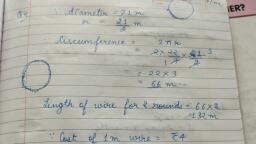 IER?
Q4 ∵ diameter = 21 m
r = 21/2 m
Circumference = 2πr
= 2 × 22/7 × 21/2 3
= 22 × 3
= 66 m
Length of wire for 2 rounds = 66 × 2
= 132 m
∵ Cost of 1 m wire = ₹4